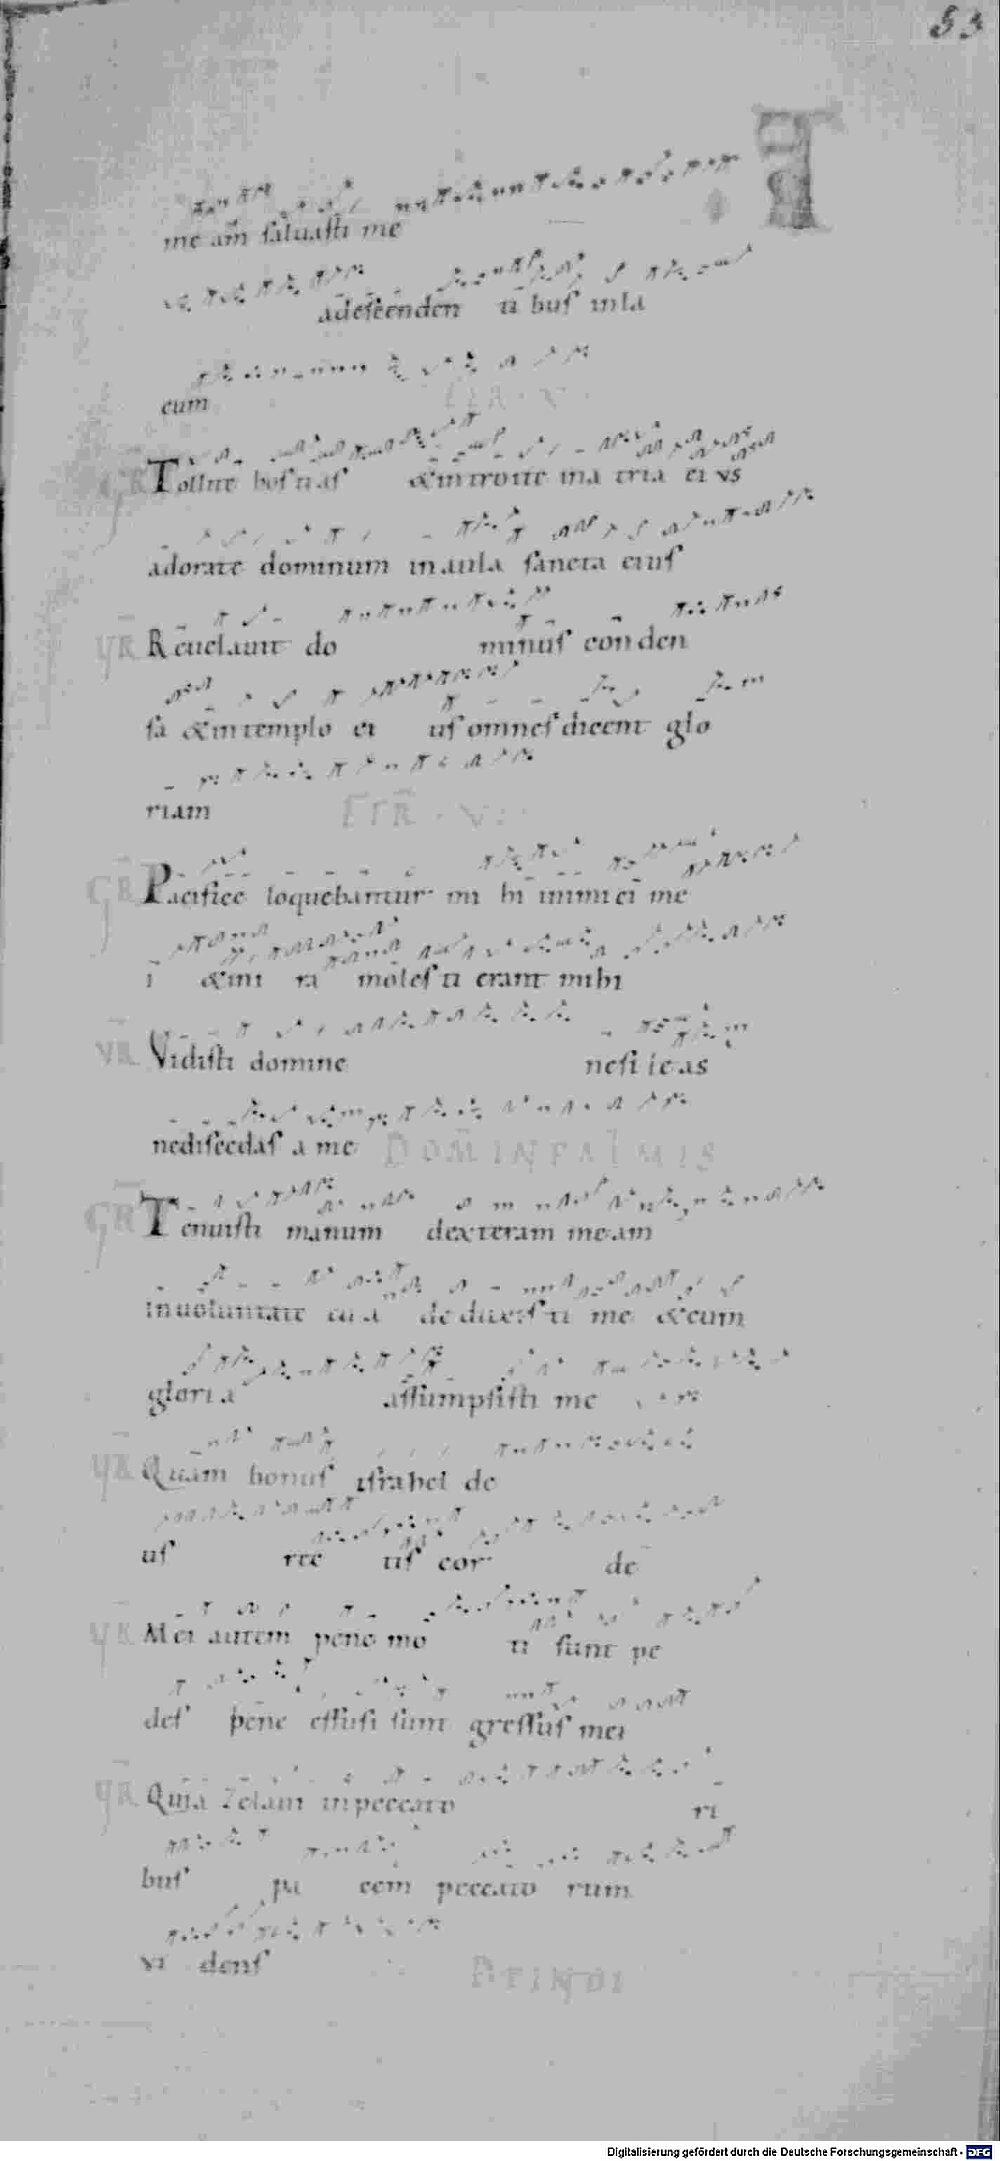 53
T
me am saluasti me
a descenden ti bus in la
cum
FER · V ·
GR Tollite hostias & introite in a tria ei us
adorate dominum in aula sancta eius
VR Reuelauit do minus con den
sa & in templo ei us omnes dicent glo
riam
FER · VI
GR Pacifice loquebantur mi hi inimici me
i & in i ra molesti erant mihi
VR Vidisti domine ne sileas
ne discedas a me DOM IN PALMIS
GR Tenuisti manum dexteram meam
in uoluntate tu a de duxisti me & cum
gloria assumpsisti me
VR Quam bonus israhel de
us rec tis cor de
VR Mei autem pene mo ti sunt pe
des pene effusi sunt gressus mei
VR Quia zelaui in peccato ri
bus pa cem peccato rum
vi dens
Digitalisierung gefördert durch die Deutsche Forschungsgemeinschaft - DFG